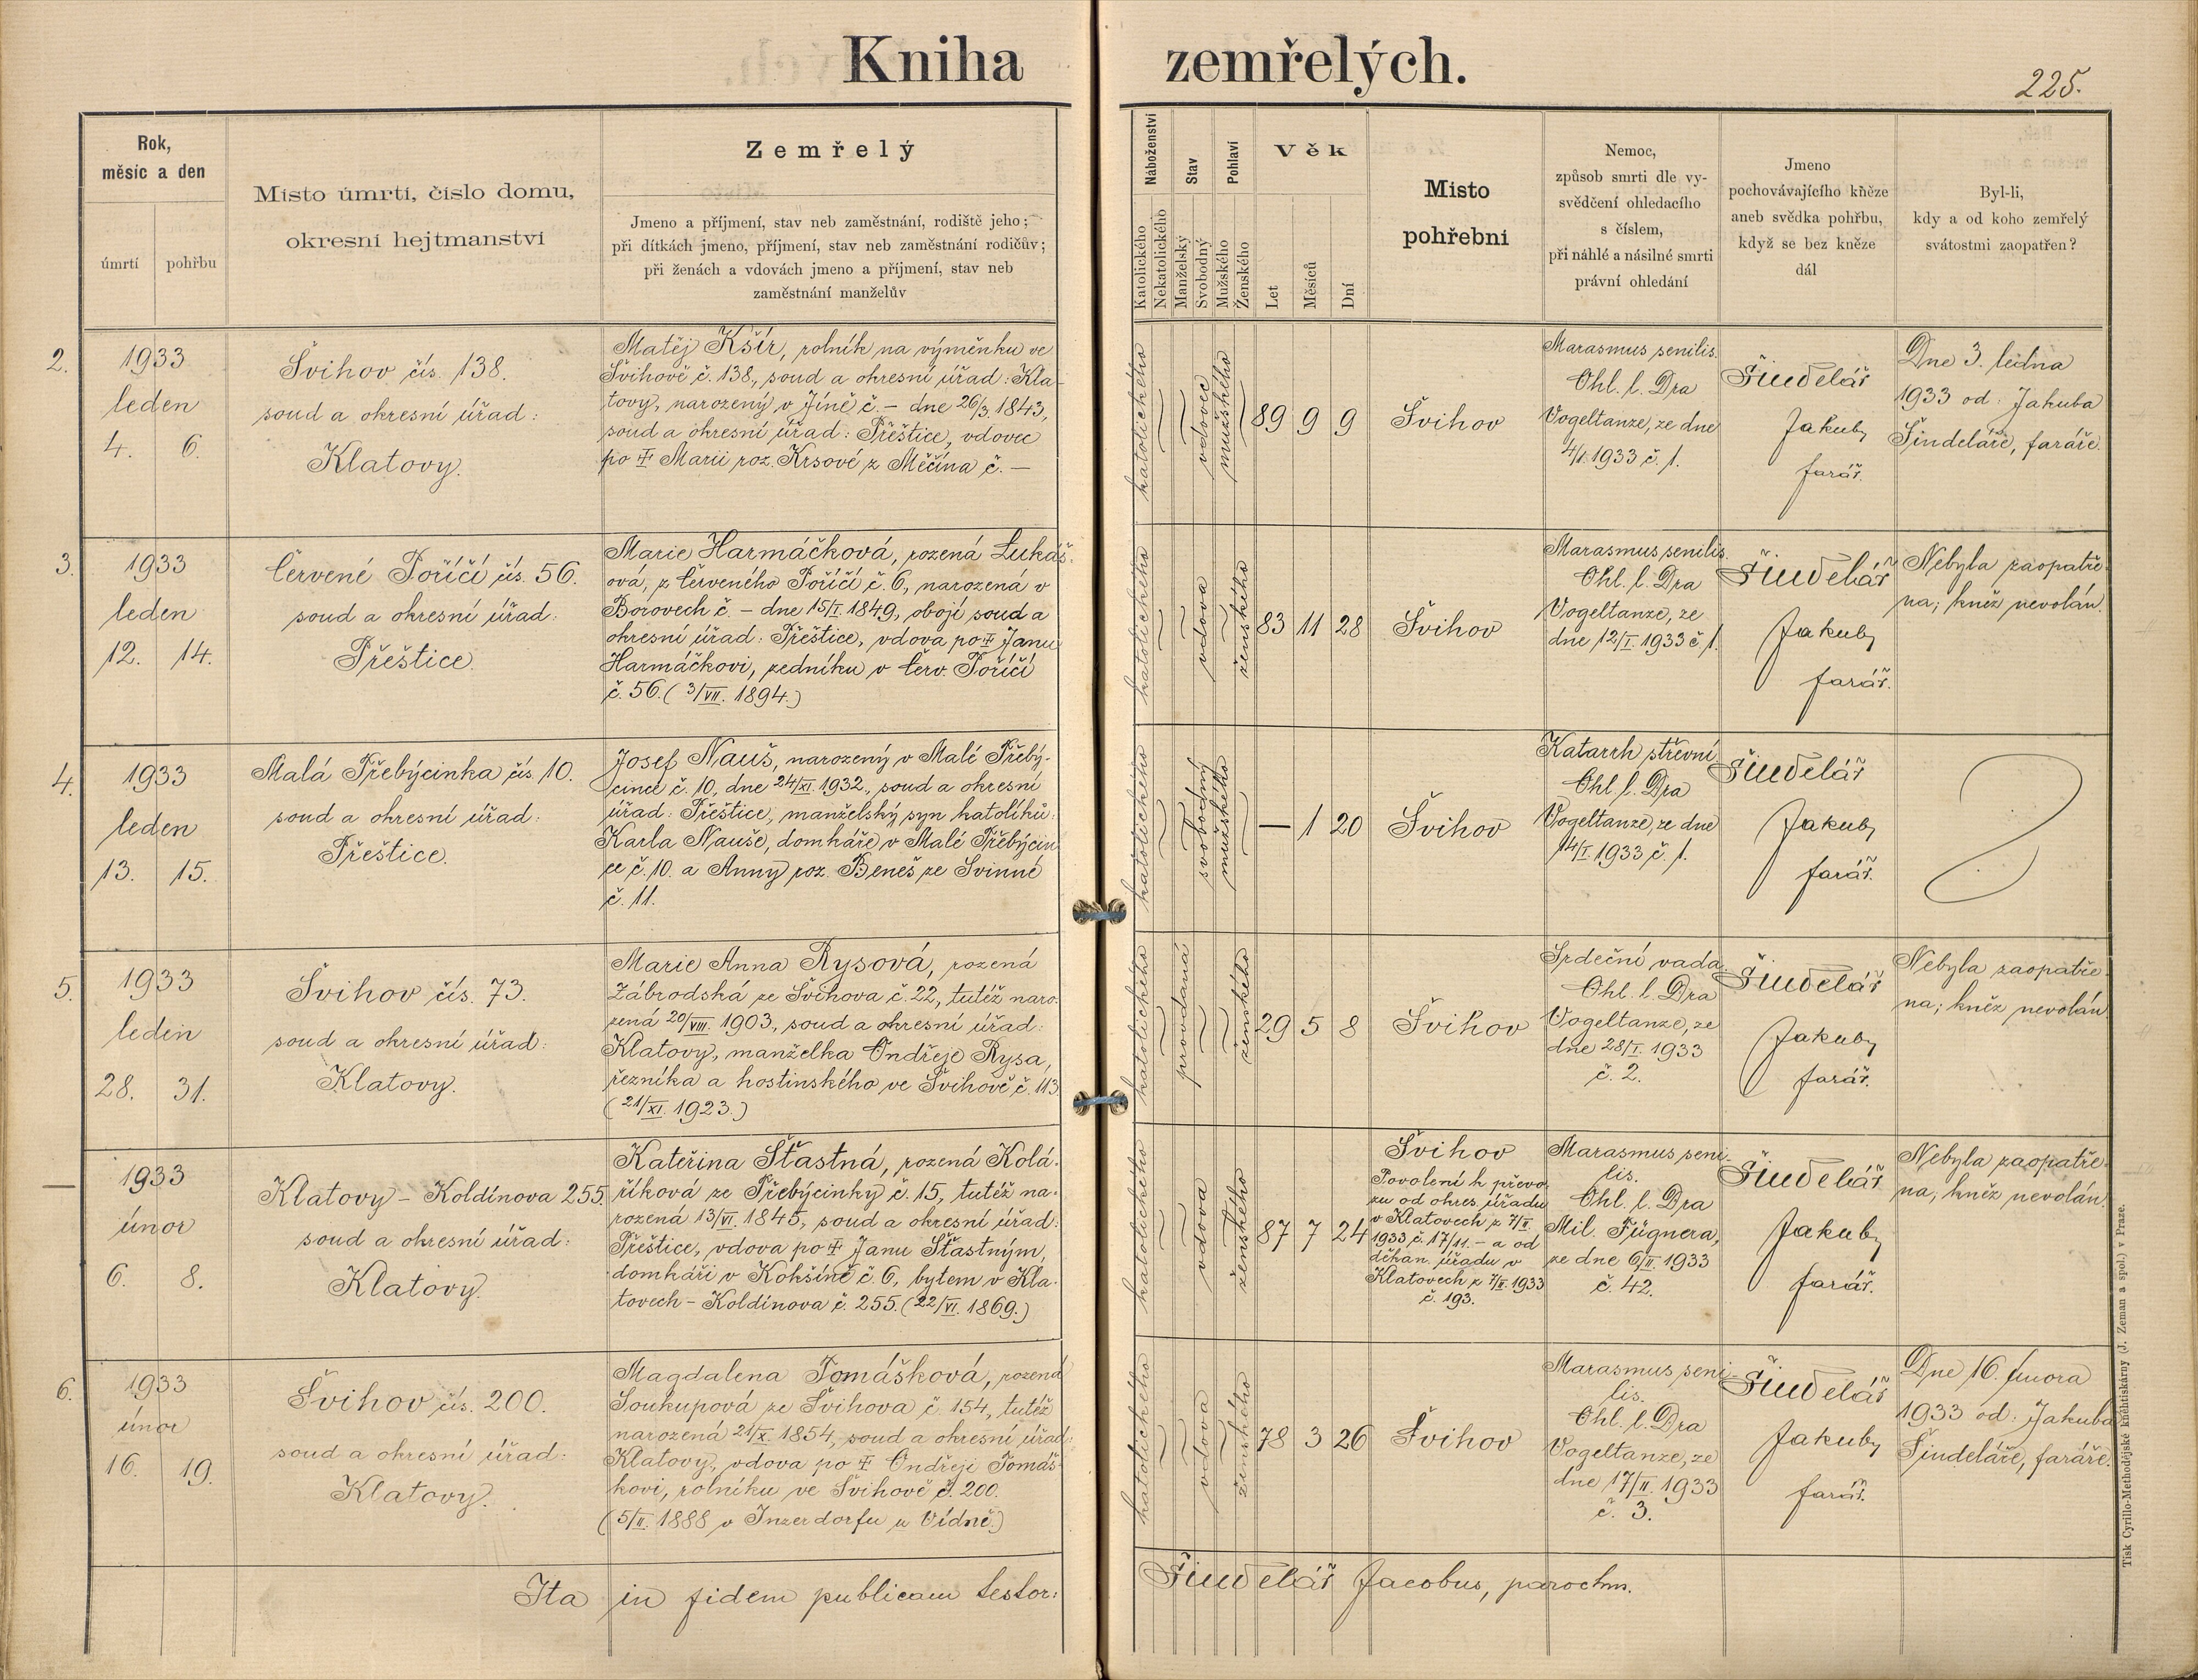 Kniha zemřelých.
225.
Rok,
měsíc a den
úmrtí
pohřbu
Místo úmrtí, číslo domu,
okresní hejtmanství
Zemřelý
Jmeno a příjmení, stav neb zaměstnání, rodiště jeho;
při dítkách jmeno, příjmení, stav neb zaměstnání rodičův;
při ženách a vdovách jmeno a příjmení, stav neb
zaměstnání manželův
Náboženství
Katolického
Nekatolického
Stav
Manželský
Svobodný
Pohlaví
Mužského
Ženského
Věk
Let
Měsíců
Dní
Místo
pohřební
Nemoc,
způsob smrti dle vy-
svědčení ohledacího
s číslem,
při náhlé a násilné smrti
právní ohledání
Jmeno
pochovávajícího kněze
aneb svědka pohřbu,
když se bez kněze
dál
Byl-li,
kdy a od koho zemřelý
svátostmi zaopatřen?
2.
1933
leden
4. 6.
Švihov čís. 138.
soud a okresní úřad:
Klatovy.
Matěj Kšír, rolník na výměnku ve
Švihově č. 138., soud a okresní úřad: Kla-
tovy, narozený v Jíně č. – dne 26/3. 1843,
soud a okresní úřad: Přeštice, vdovec
po ✝ Marii roz. Krsové z Měčína č. –
katolického
vdovec
mužského
89 9 9
Švihov
Marasmus senilis.
Ohl. l. Dra
Vogeltanze, ze dne
4/I. 1933 č. 1.
Šindelář
Jakub,
farář.
Dne 3. ledna
1933 od: Jakuba
Šindeláře, faráře.
3.
1933
leden
12. 14.
Červené Poříčí čís. 56.
soud a okresní úřad:
Přeštice.
Marie Harmáčková, rozená Lukáš-
ová, z Červeného Poříčí č. 6, narozená v
Borovech č. – dne 15/I. 1849, obojí soud a
okresní úřad: Přeštice, vdova po ✝ Janu
Harmáčkovi, zedníku v Červ. Poříčí
č. 56. (3/VII. 1894.)
katolického
vdova
ženského
83 11 28
Švihov
Marasmus senilis.
Ohl. l. Dra
Vogeltanze, ze
dne 12/I. 1933 č. 1.
Šindelář
Jakub,
farář.
Nebyla zaopatře-
na; kněz nevolán.
4.
1933
leden
13. 15.
Malá Přebýcinka čís. 10.
soud a okresní úřad:
Přeštice.
Josef Nauš, narozený v Malé Přebý-
cince č. 10, dne 24/XI. 1932, soud a okresní
úřad: Přeštice, manželský syn katolíků:
Karla Nauše, domkáře v Malé Přebýcin
ce č. 10. a Anny roz. Beneš ze Svinné
č. 11.
katolického
svobodný
mužského
— 1 20
Švihov
Katarrh střevní
Ohl. l. Dra
Vogeltanze, ze dne
14/I. 1933 č. 1.
Šindelář
Jakub,
farář.
5.
1933
leden
28. 31.
Švihov čís. 73.
soud a okresní úřad:
Klatovy.
Marie Anna Rysová, rozená
Zábrodská ze Švihova č. 22, tutéž naro-
zená 20/VIII. 1903, soud a okresní úřad:
Klatovy, manželka Ondřeje Rysa,
řezníka a hostinského ve Švihově č. 113
(21/XI. 1923.)
katolického
provdaná
ženského
29 5 8
Švihov
Srdeční vada.
Ohl. l. Dra
Vogeltanze, ze
dne 28/I. 1933
č. 2.
Šindelář
Jakub,
farář.
Nebyla zaopatře-
na; kněz nevolán.
—
1933
únor
6. 8.
Klatovy – Koldínova 255.
soud a okresní úřad:
Klatovy.
Kateřina Šťastná, rozená Kolá-
říková ze Přebýcinky č. 15, tutéž na-
rozená 13/VI. 1845, soud a okresní úřad:
Přeštice, vdova po ✝ Janu Šťastným,
domkáři v Kokšíně č. 6, bytem v Kla-
tovech – Koldínova č. 255. (22/VI. 1869.)
katolického
vdova
ženského
87 7 24
Švihov
Povolení k převo-
zu od okres. úřadu
v Klatovech z 7/II.
1933 č. 17/11. – a od
děkan. úřadu v
Klatovech z 7/II. 1933
č. 193.
Marasmus seni-
lis.
Ohl. l. Dra
Mil. Fügnera,
ze dne 6/II. 1933
č. 42.
Šindelář
Jakub,
farář.
Nebyla zaopatře-
na; kněz nevolán.
6.
1933
únor
16. 19.
Švihov čís. 200.
soud a okresní úřad:
Klatovy.
Magdalena Tomášková, rozená
Soukupová ze Švihova č. 154, tutéž
narozená 21/X. 1854, soud a okresní úřad:
Klatovy, vdova po ✝ Ondřeji Tomáš-
kovi, rolníku ve Švihově č. 200.
(5/II. 1888 v Inzerdorfu u Vídně.)
katolického
vdova
ženského
78 3 26
Švihov
Marasmus seni-
lis.
Ohl. l. Dra
Vogeltanze, ze
dne 17/II. 1933
č. 3.
Šindelář
Jakub,
farář.
Dne 16. února
1933 od: Jakuba
Šindeláře, faráře.
Ita in fidem publicam testor: Šindelář Jacobus, parochus.
Tisk Cyrillo-Methodějské kněhtiskárny (J. Zeman a spol.) v Praze.